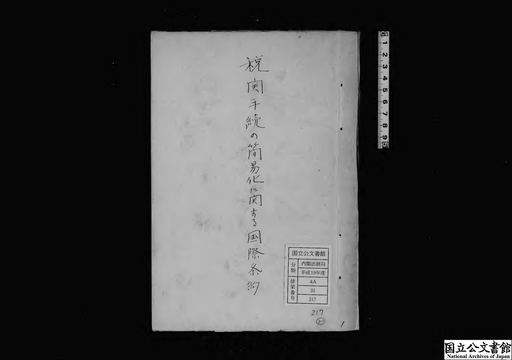 税関手続の簡易化に関する国際条約
国立公文書館
分類
内閣法制局
平成19年度
排架番号
4A
31
217
217
1
1 2 3 4 5 6 7 8 9
国立公文書館
National Archives of Japan